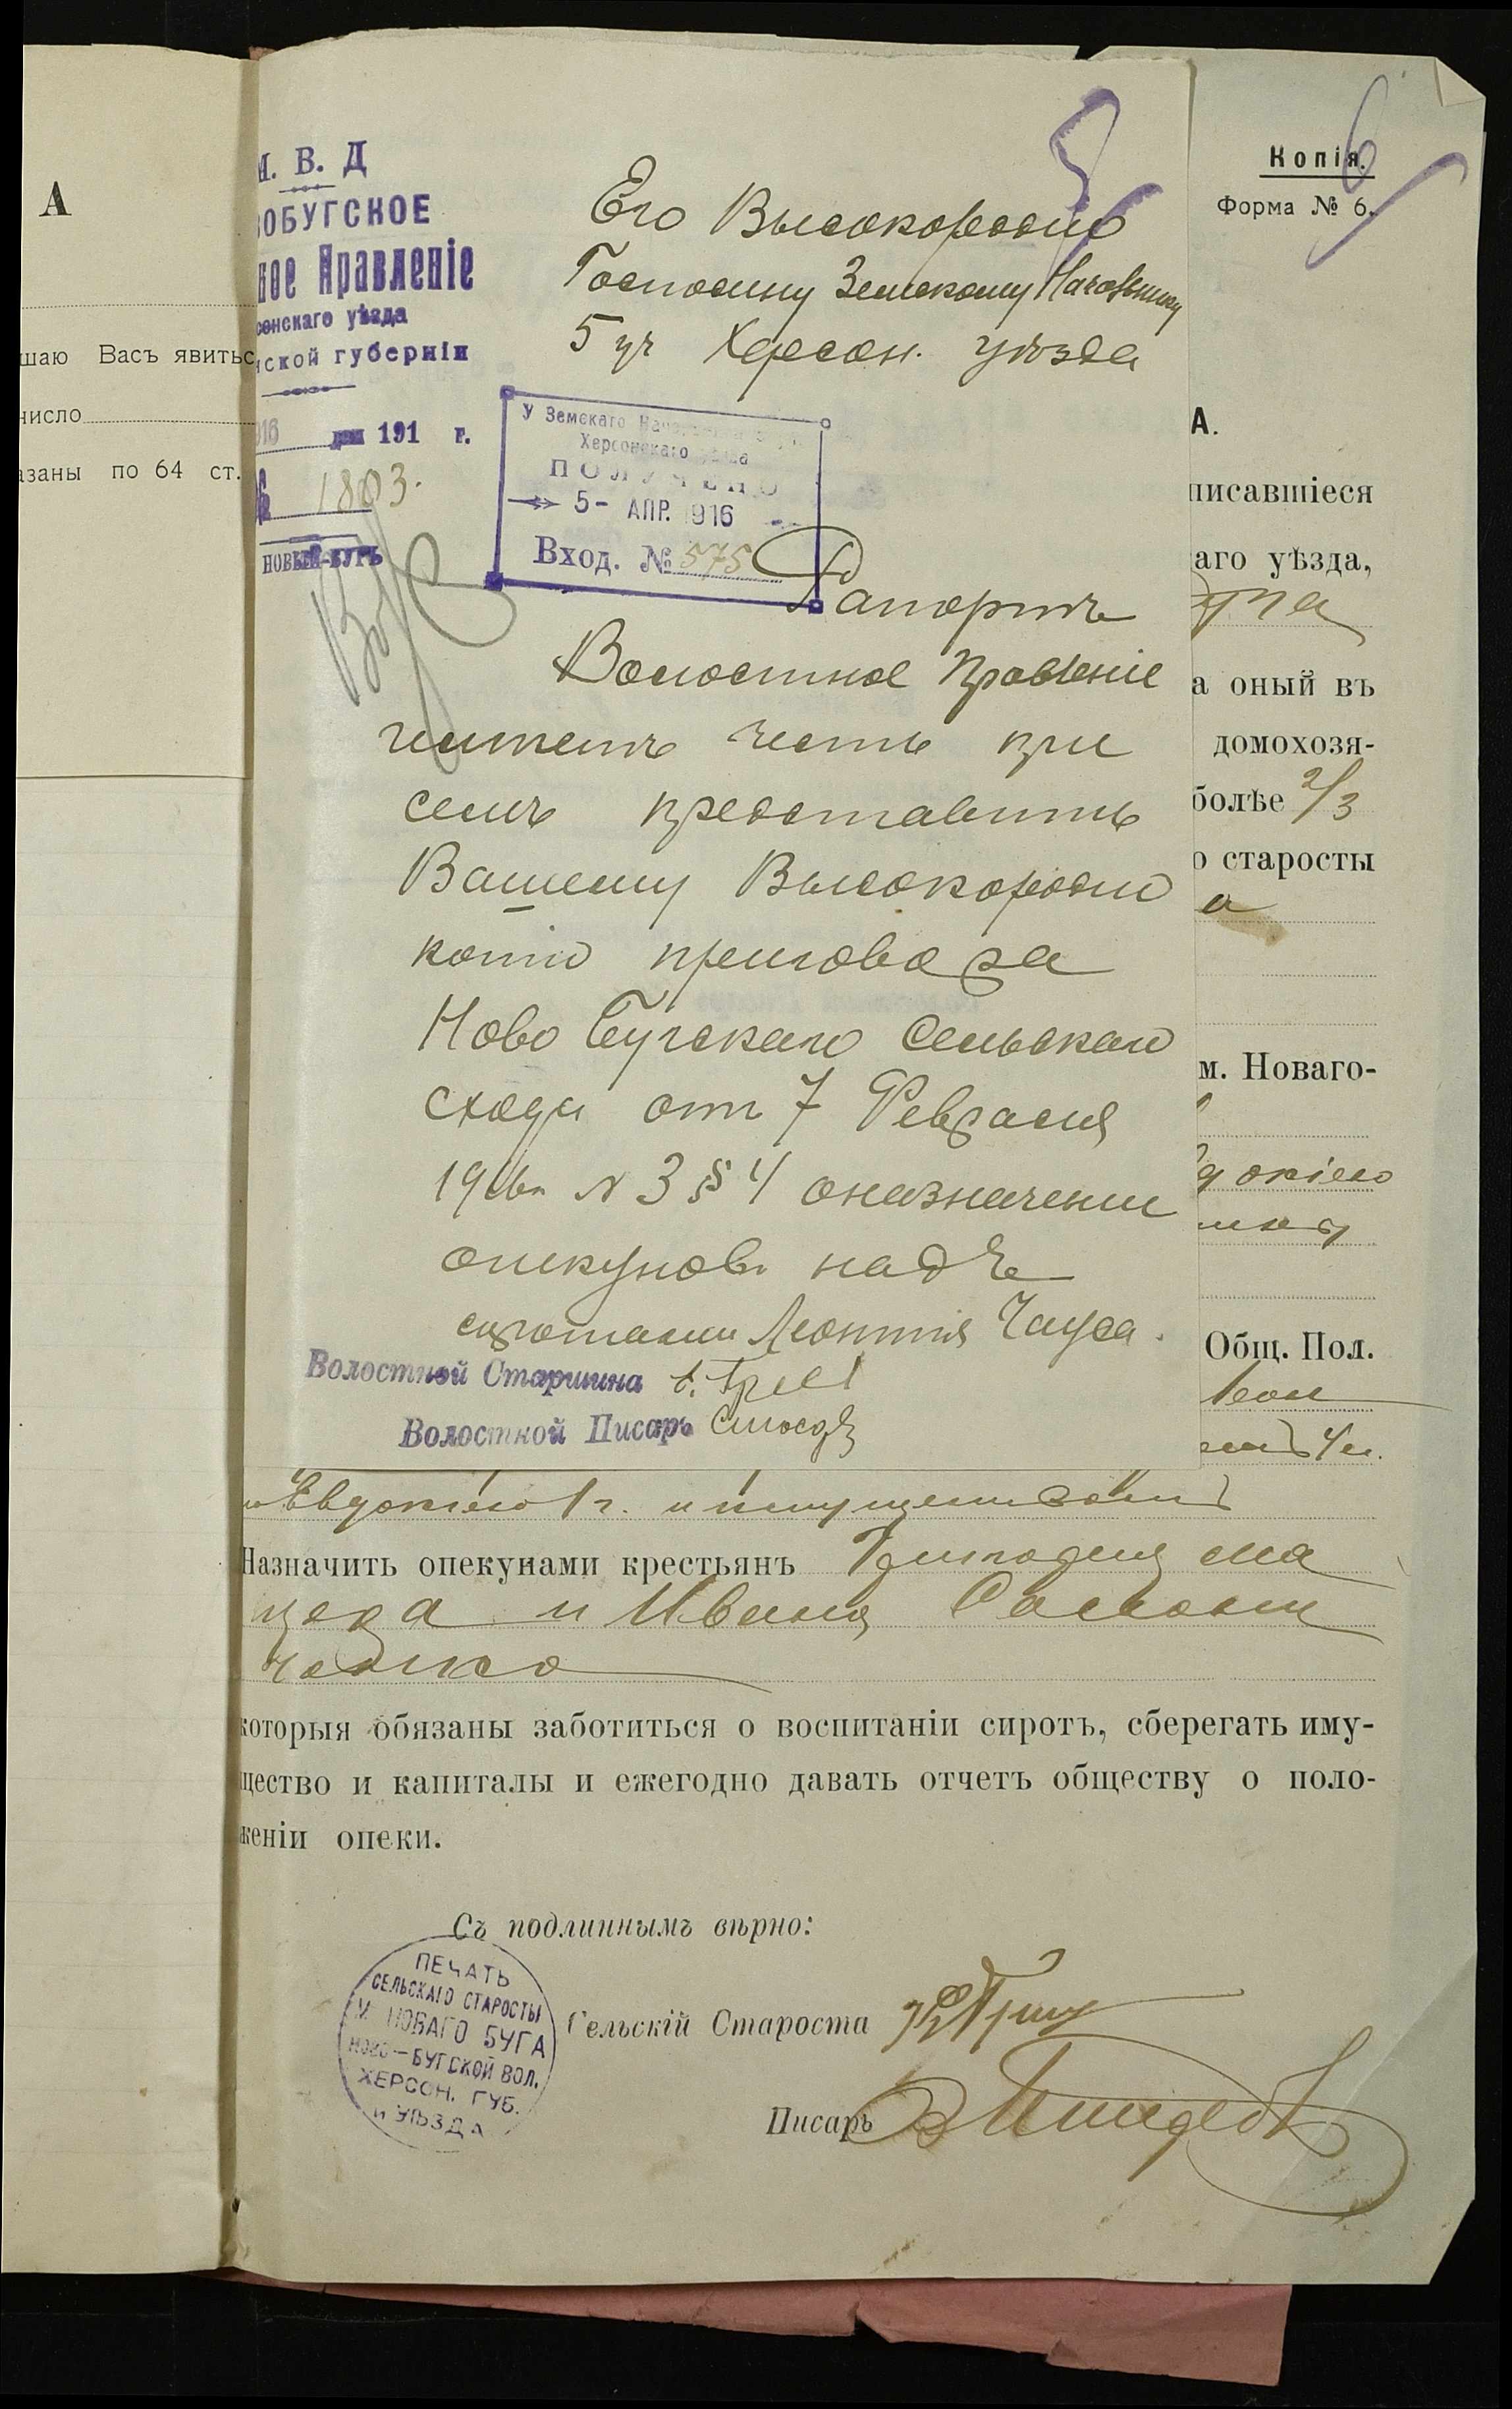 А
шаю Васъ явитьс
число
азаны по 64 ст.
М. В. Д
ВОБУГСКОЕ
ное Правленіе
сонскаго уѣзда
нской губерніи
916 дня 191 г.
№ 1803.
НОВЫЙ-БУГЪ
5
Его Высокородію
Господину Земскому Начальнику
5 уч Херсон. уѣзда
У Земскаго Нача
Херсонскаго уѣзда
ПОЛУЧЕНО
5- АПР. 1916
Вход. № 575
Рапортъ
Волостное Правленіе
честь при
семъ представить
Вашему Высокородію
копію приговора
Ново Бугскаго Сельскаго
схода отъ 7 Февраля
1916 г. № 3 § 4 о назначеніи
опекуновъ надъ
сиротами Леонтія Чауса.
Волостной Старшина
Волостной Писарь
6
Копія.
Форма № 6.
А.
писавшіеся
аго уѣзда,
а оный въ
домохозя-
болѣе 2/3
о старосты
а
м. Новаго-
Общ. Пол.
4 л.
Евдокію 1 г. и имуществомъ
Назначить опекунами крестьянъ
и Ивана
которыя обязаны заботиться о воспитаніи сиротъ, сберегать иму-
щество и капиталы и ежегодно давать отчетъ обществу о поло-
женіи опеки.
Съ подлиннымъ вѣрно:
ПЕЧАТЬ
СЕЛЬСКАГО СТАРОСТЫ
М. НОВАГО БУГА
НОВО-БУГСКОЙ ВОЛ.
ХЕРСОН. ГУБ.
И УѢЗДА
Сельскій Староста
Писарь